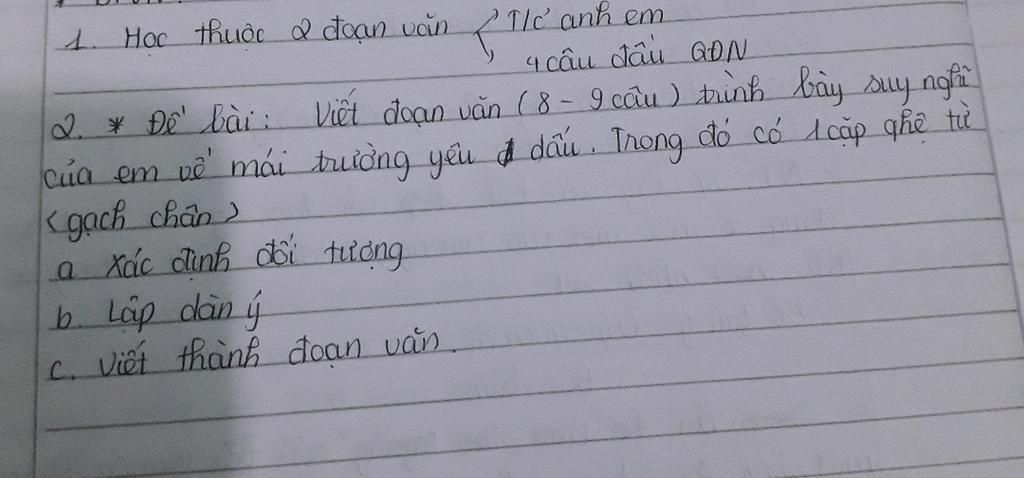 1. Học thuộc 2 đoạn văn T/c anh em
4 câu đầu QĐN
2. * Đề bài: Viết đoạn văn (8 - 9 câu) trình bày suy nghĩ
của em về mái trường yêu dấu. Trong đó có 1 cặp qhệ từ
(gạch chân)
a Xác định đối tượng
b. Lập dàn ý
c. Viết thành đoạn văn.